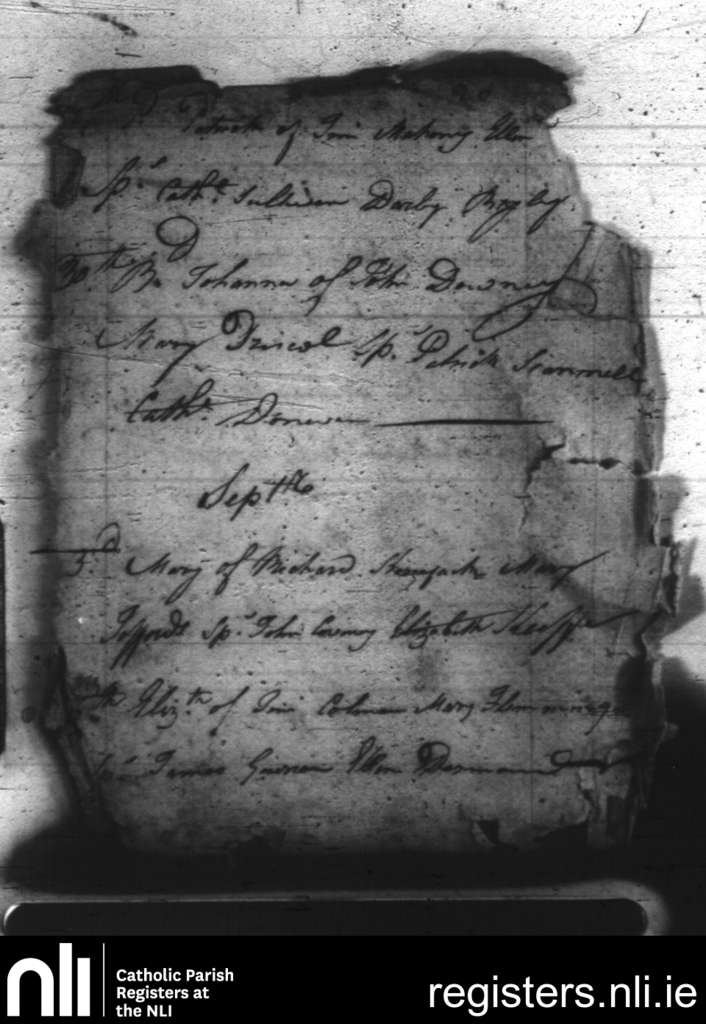 Patrick of Tim Mahony Ellen
Sps Cathe Sullivan Darby Bagley
D
30th Ba Johanna of John Downey
Mary Driscol Sps Patrick Scannell
Cathe Donovan
Septbr
3d Mary of Richard Mary
Sps John Coveney Elizabeth Keeffe
th Elizth of Tim Coleman Mary Flemming
Sps James Ellen
nli
Catholic Parish
Registers at
the NLI
registers.nli.ie